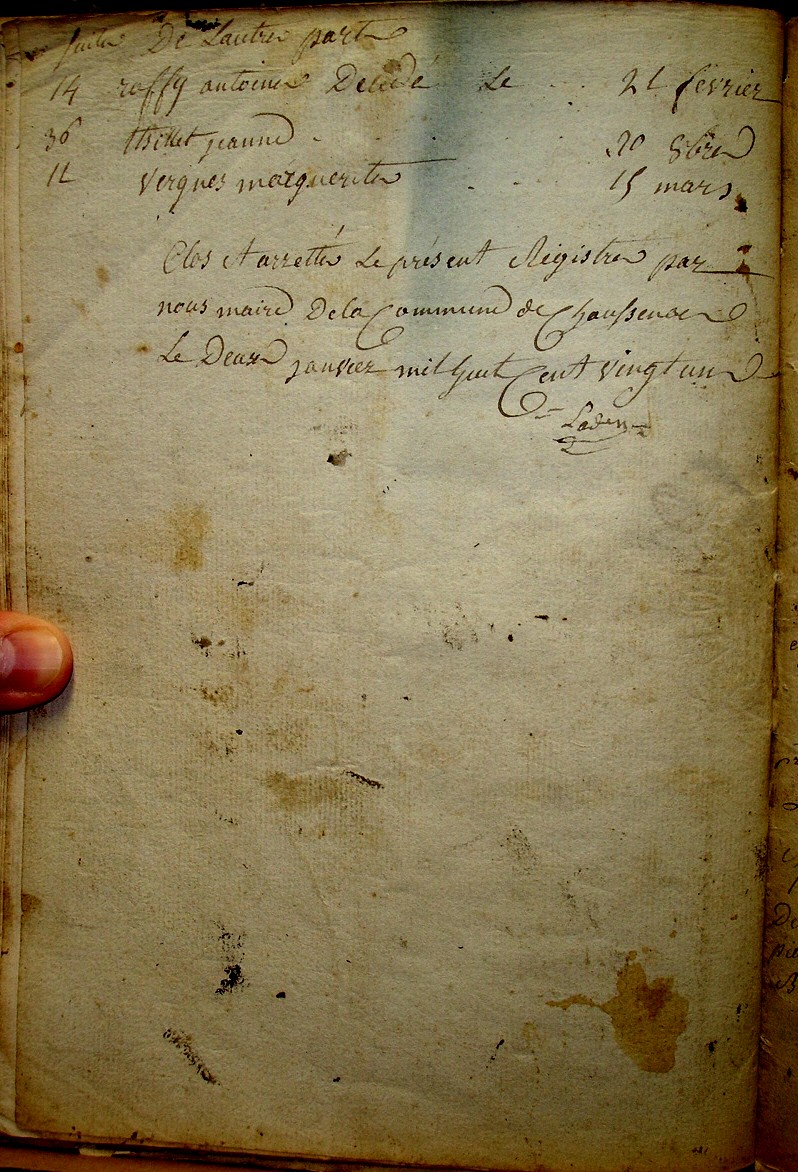 Suite De Lautre part
14 roffy antoine Décédé Le 21 février
36 thillet jeanne 20 8bre
11 Vergnes marguerite 15 mars
Clos et arretté Le présent Régistre par
nous maire De la Commune de Chaussenac
Le Deux janvier mil huit Cent vingt un